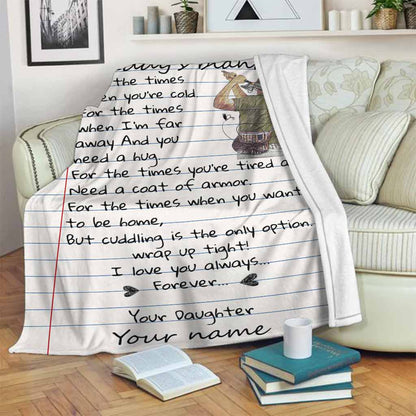 For the times
you're cold.
For the times
when I'm far
away And you
need a hug.
For the times you're tired a
Need a coat of armor.
For the times when you want
to be home,
But cuddling is the only option.
wrap up tight!
I love you always...
Forever...
Your Daughter
Your name